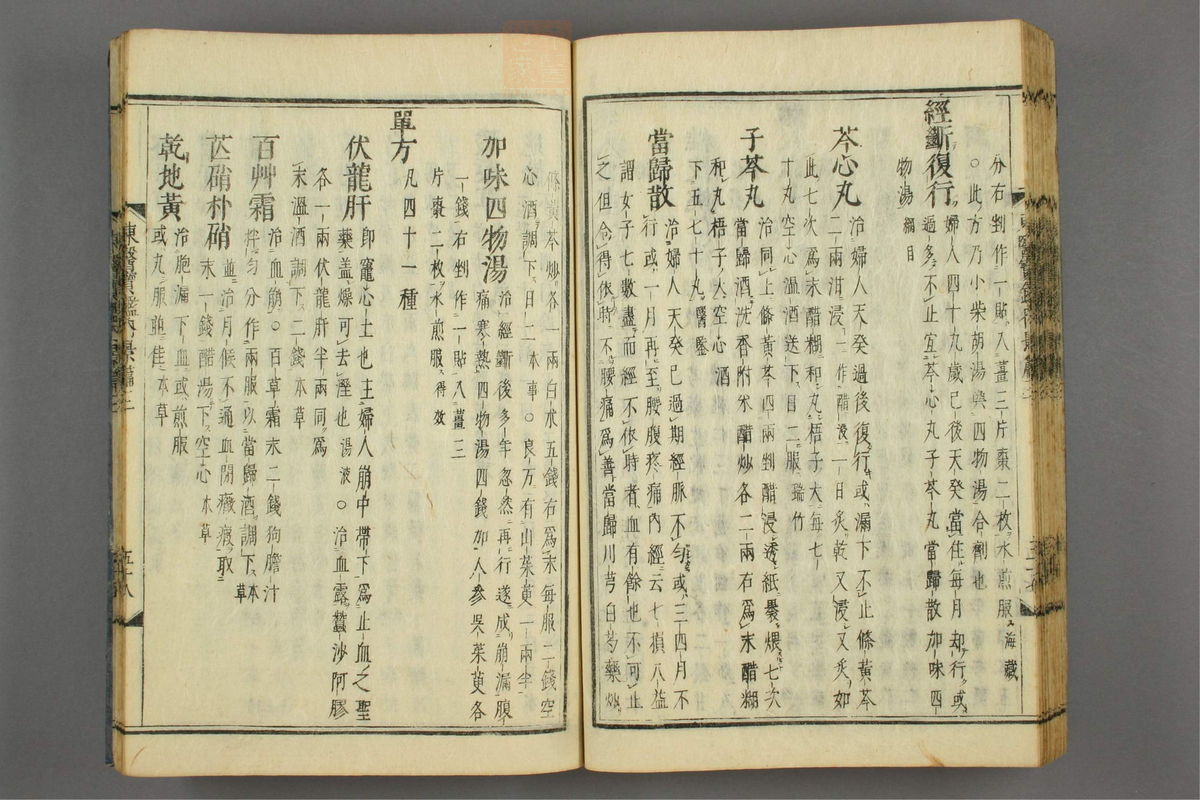 分右剉作一貼入薑三片棗二枚水煎服海藏
○此方乃小柴胡湯與四物湯合劑也
經斷復行
婦人四十九歲已後天癸當住每月却行或
過多不止宜芩心丸子芩丸當歸散加味四
物湯綱目
芩心丸
治婦人天癸過後復行或漏下不止條黃芩
二兩泔浸一作醋浸一日炙乾又浸又炙如
此七次爲末醋糊和丸梧子大每七
十丸空心溫酒送下日二服瑞竹
子芩丸
治同上條黃芩四兩剉醋浸透紙裹煨七次
當歸酒洗香附米醋炒各二兩右爲末醋糊
和丸梧子大空心酒
下五七十丸醫鑒
當歸散
治婦人天癸已過期經脈不勻或三四月不
行或一月再至腰腹疼痛內經云七損八益
謂女子七數盡而經不依時者血有餘也不可止
之但令得依時不腰痛爲善當歸川芎白芍藥炒
條黃芩炒各一兩白朮五錢右爲末每服二錢空
心酒調下日二本事○良方有山茱萸一兩半
加味四物湯
治經斷後多年忽然再行遂成崩漏腹
痛寒熱四物湯四錢加人參吳茱萸各
一錢右剉作一貼入薑三
片棗二枚水煎服得效
單方
凡四十一種
伏龍肝
卽竈心土也主婦人崩中帶下爲止血之聖
藥盖燥可去溼也湯液○治血露蠶沙阿膠
各一兩伏龍肝半兩同爲
末溫酒調下二錢本草
百艸霜
治血崩○百草霜末二錢狗膽汁
拌勻分作兩服以當歸酒調下本草
芒硝朴硝
並治月候不通血閉癥瘕取
末一錢醋湯下空心本草
乾地黃
治胞漏下血或煎服
或丸服皆佳本草
東醫寶鑑內景篇三
五十八